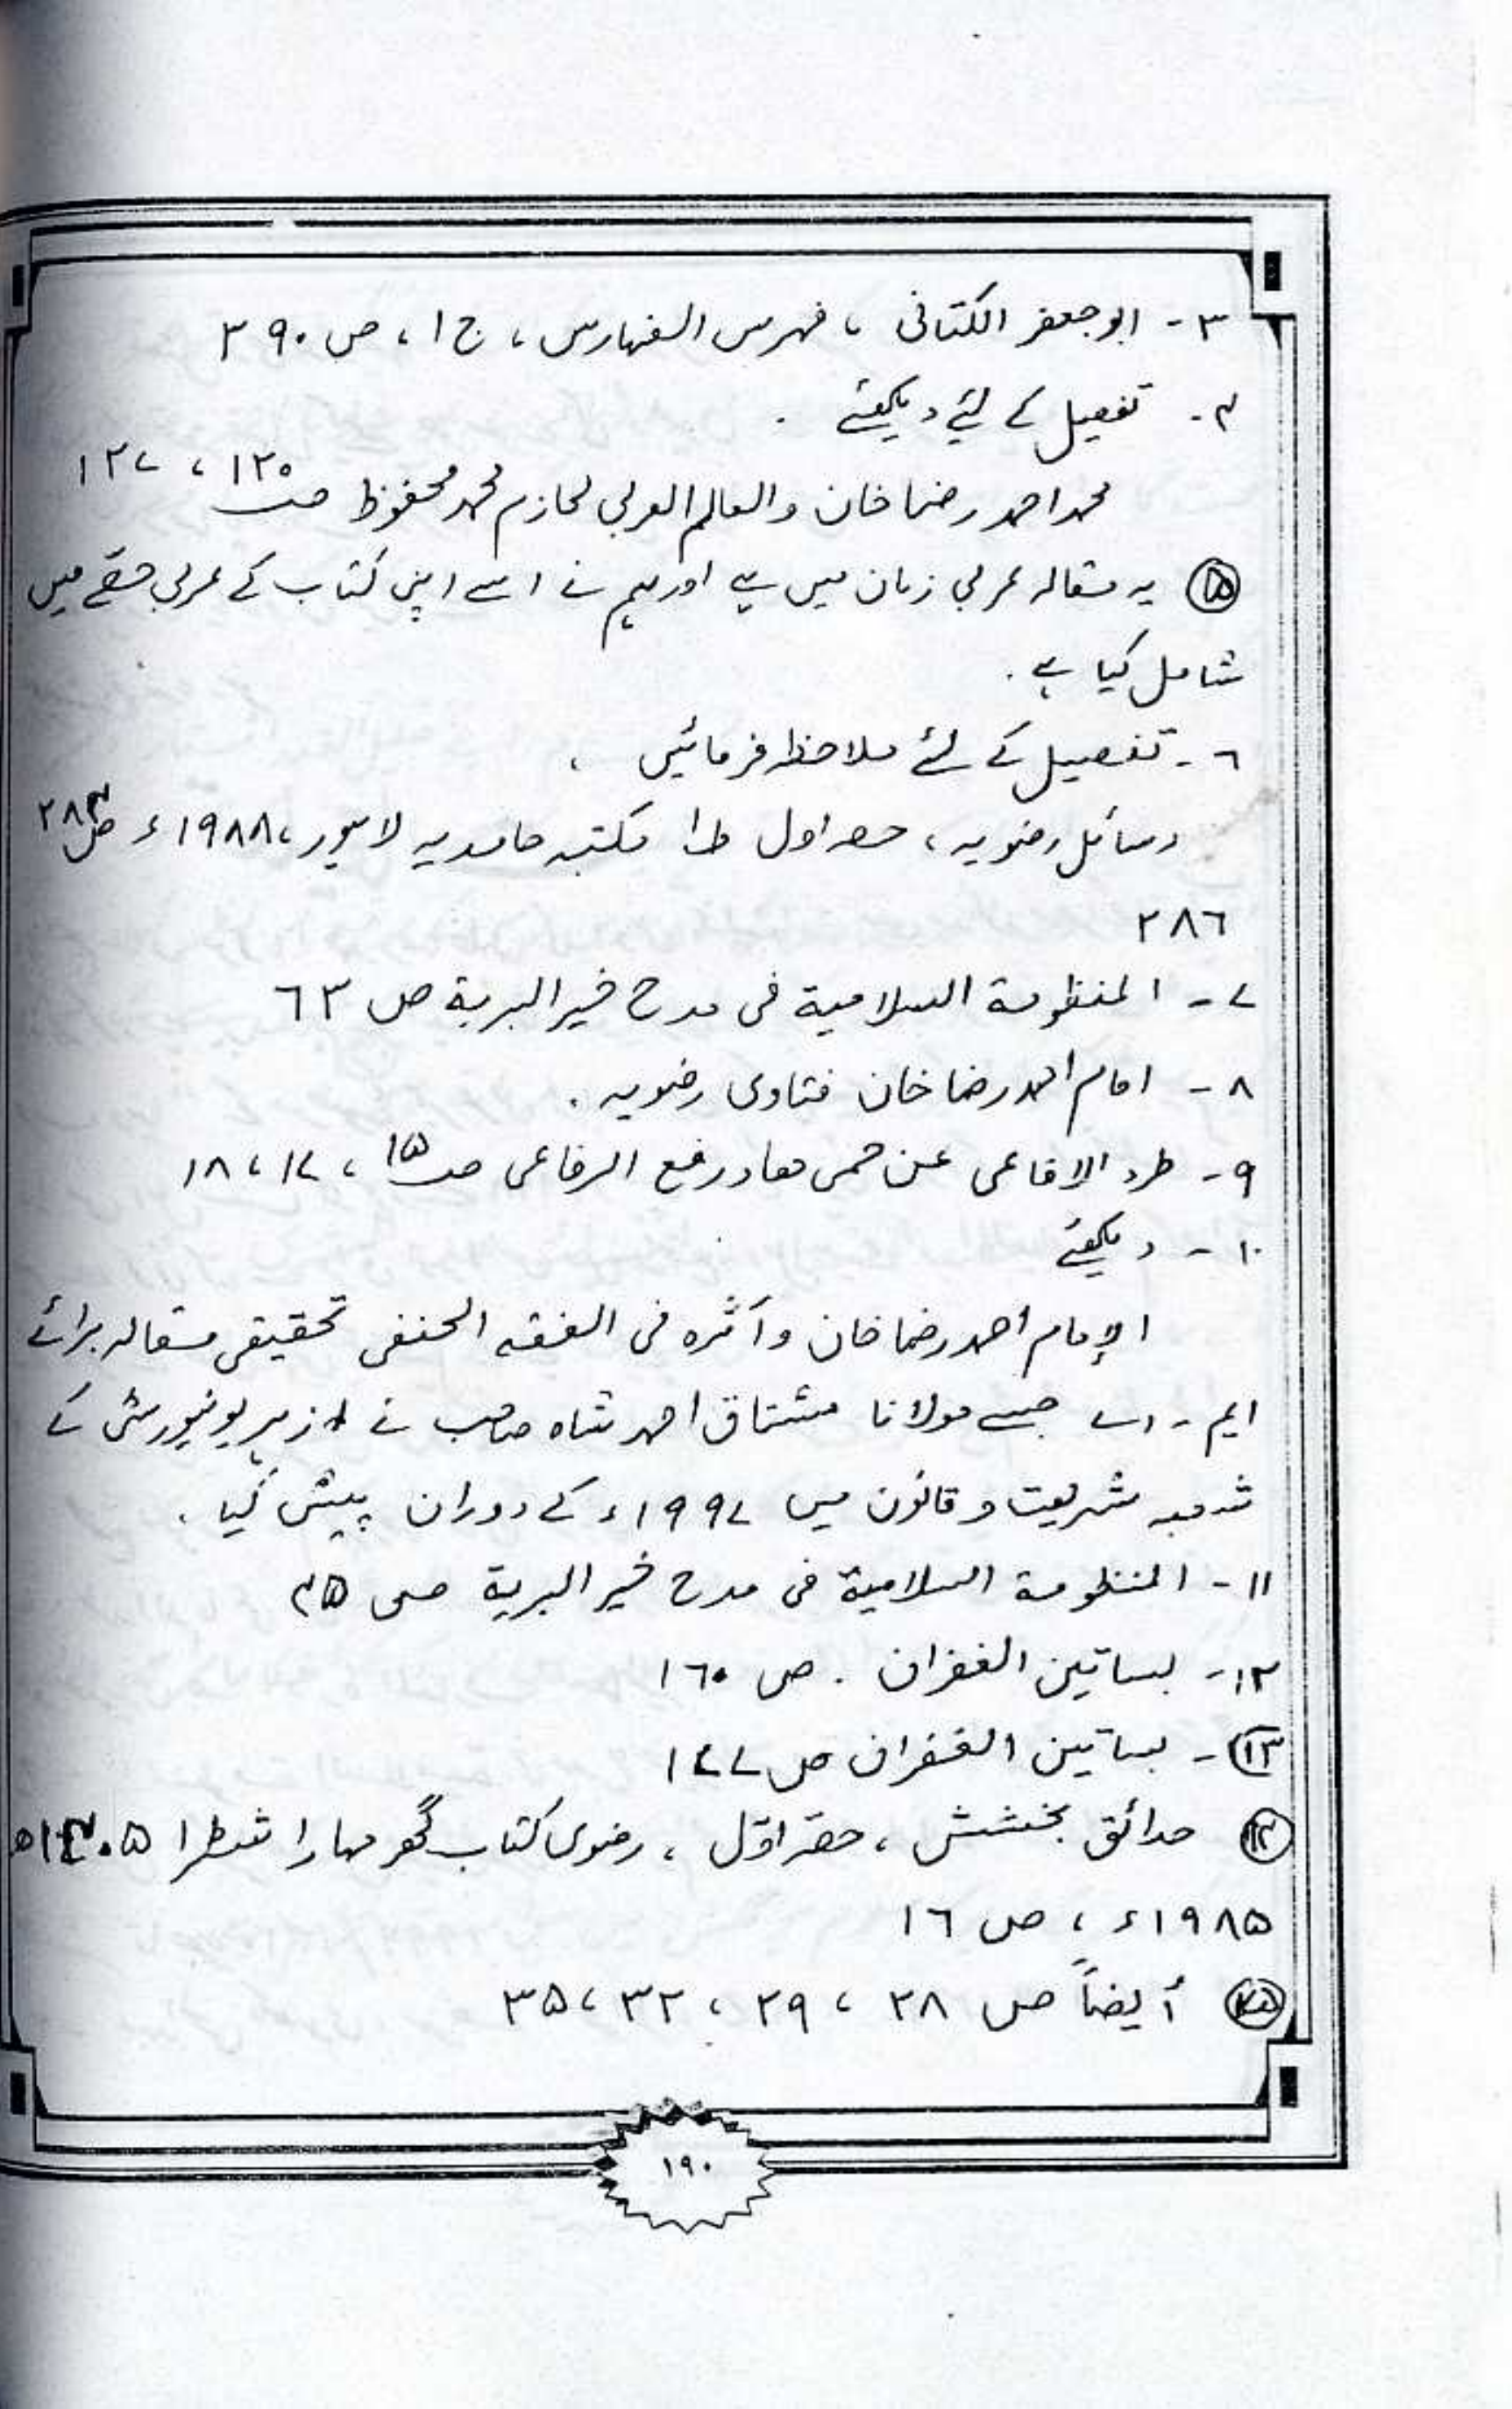 ۳- ابو جعفر الکتانی ، فہرس الفہارس ، ج ۱ ، ص ۳۹۰
۴- تفصیل کے لئے دیکھئے .
محمد احمد رضا خان والعالم العربی لحازم محمد محفوظ صـ ۱۲۵ ، ۱۲۷
۵ یہ مقالہ عربی زبان میں ہے اور ہم نے اسے اپنی کتاب کے عربی حصّے میں
شامل کیا ہے .
٦- تفصیل کے لئے ملاحظہ فرمائیں ،
رسائل رضویہ ، حصہ اول ط۱ مکتبہ حامدیہ لاہور ، ۱۹۸۸ء ص ۲۸۴
۲۸٦
۷- المنظومة السلامية فی مدح خیر البریة ص ٦۳
۸- امام احمد رضا خان فتاوی رضویہ .
۹- طرد الافاعی عن حمی ھاد رفع الرفاعی صـ ۱۵ ، ۱۷ ، ۱۸
۱۰- دیکھئے
الإمام أحمد رضا خان وأثره فی الفقه الحنفی تحقیقی مقالہ برائے
ایم - اے جسے مولانا مشتاق احمد شاہ صاحب نے ازہر یونیورسٹی کے
شعبہ شریعت و قانون میں ۱۹۹۷ء کے دوران پیش کیا .
۱۱- المنظومة السلامية فی مدح خیر البریة صـ ۴۵
۱۲- بساتین الغفران . ص ۱٦۰
۱۳- بساتین الغفران ص ۱٤۷
۱۴ حدائق بخشش ، حصّہ اوّل ، رضوی کتاب گھر مہاراشٹرا ۱٤۰۵ھ
۱۹۸۵ء ، ص ۱٦
۱۵ أیضاً ص ۲۸ ، ۲۹ ، ۳۲ ، ۳۵
۱۹۰